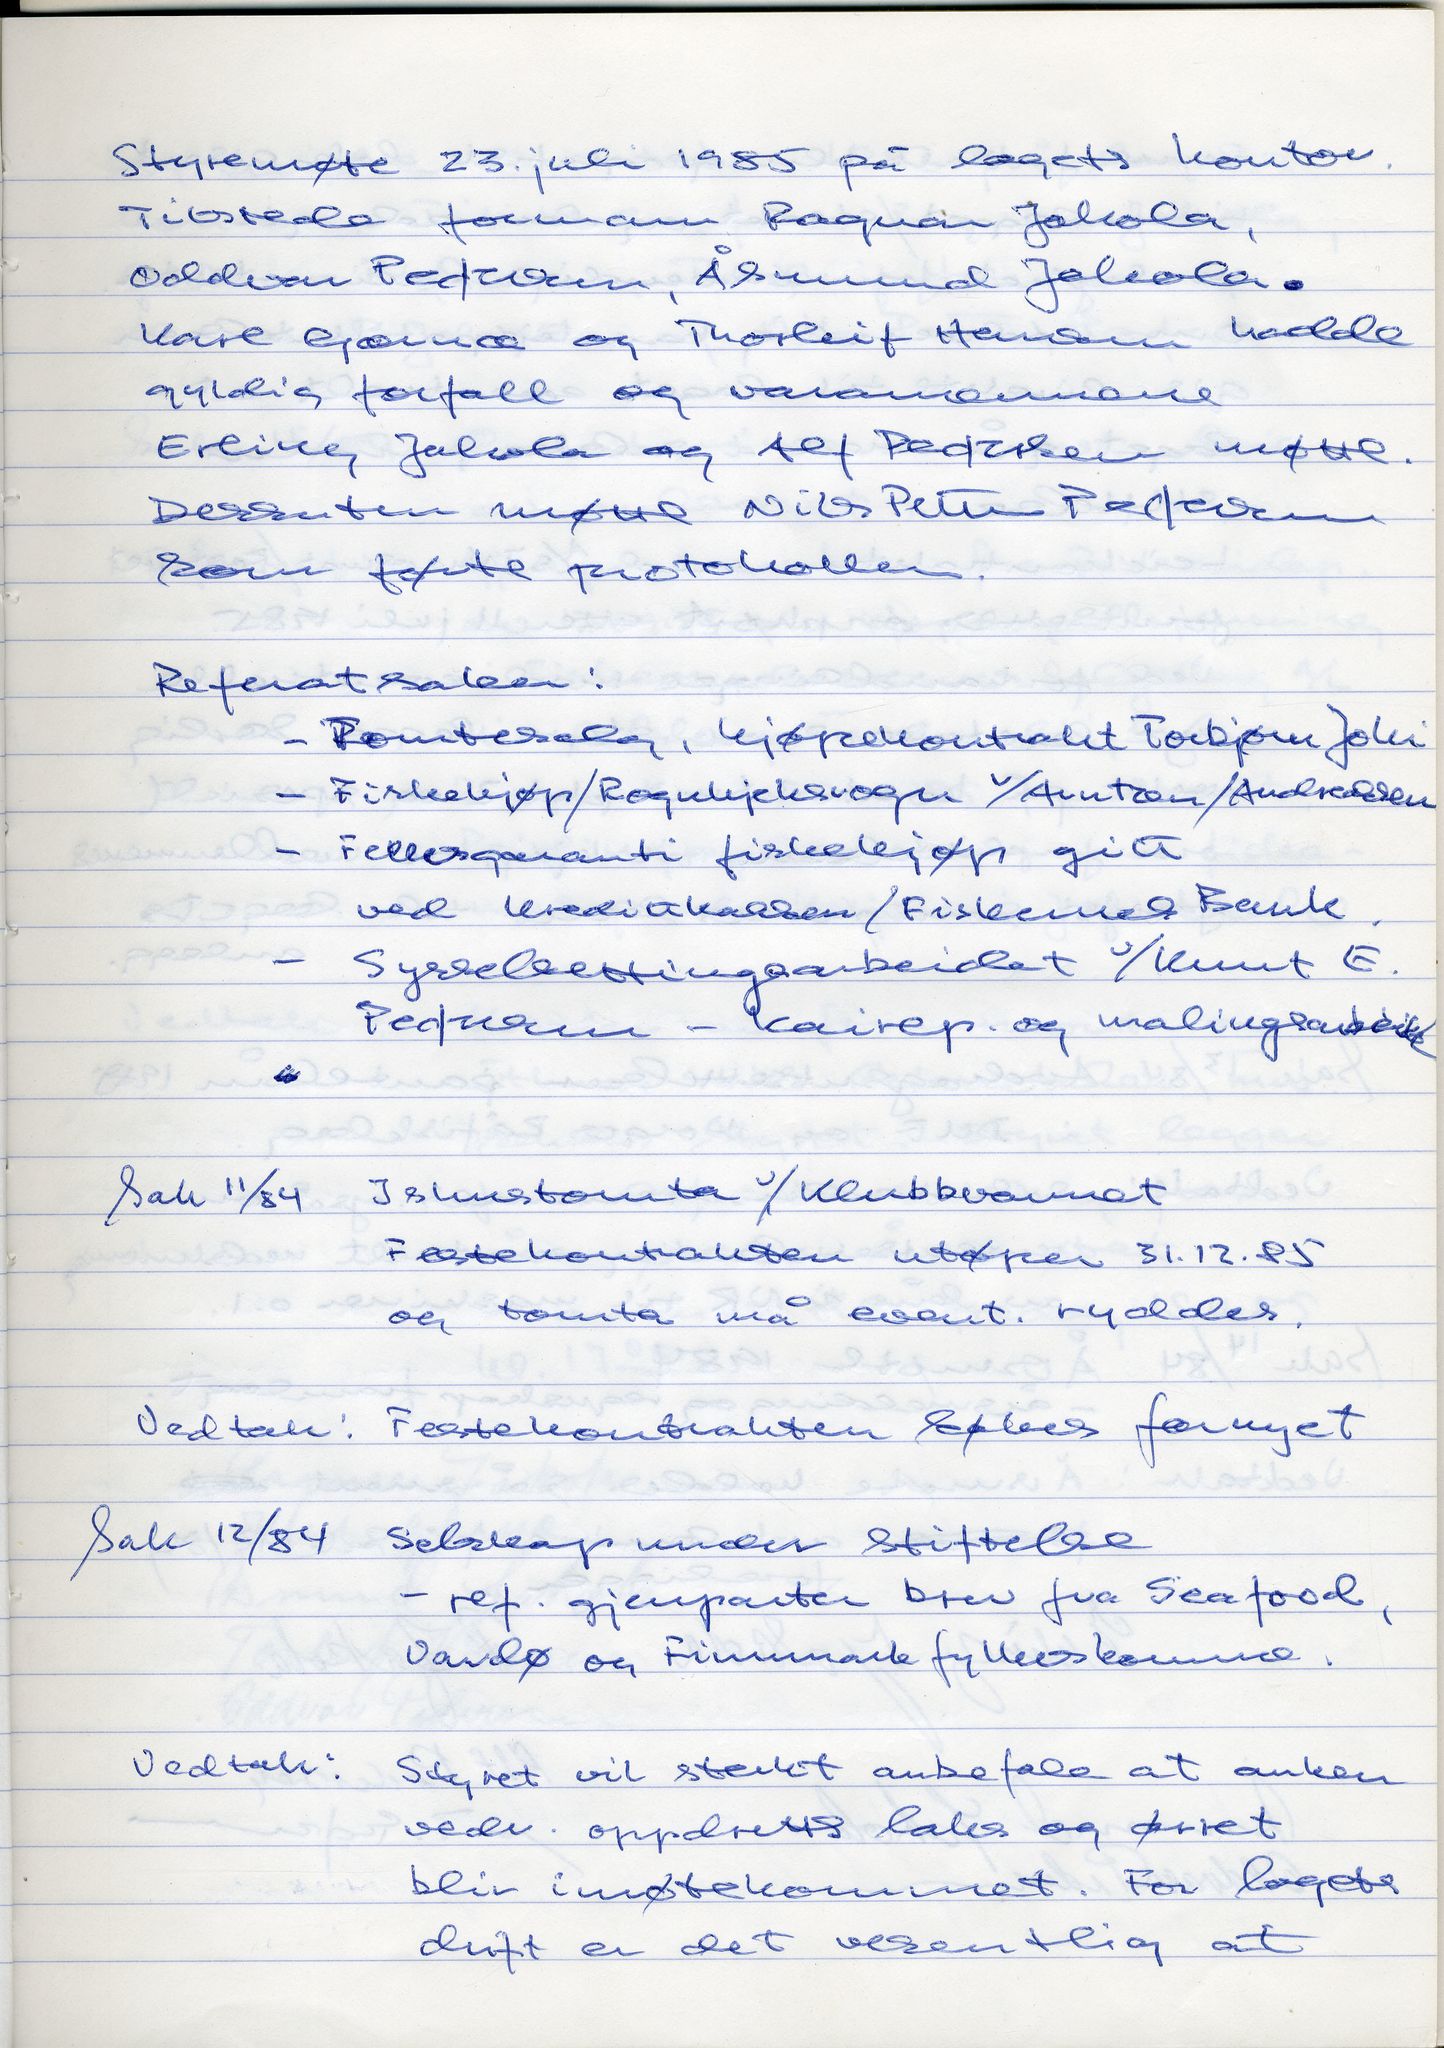 Styremøte 23. juli 1985 på lagets kontor.
Tilstede formann Ragnar Jakola,
Oddvar Pedersen, Åsmund Jakola.
Karl og Thorleif Hansen hadde
gyldig forfall og varamennene
Erling Jakola og Alf Pedersen møtte.
Dessuten møtte Nils Petter Pedersen
som førte protokollen.
Referatsaker:
- Tomtesalg, kjøpekontrakt Torbjørn Joki
- Fiskekjøp/Rognkjeksrogn v/Arntzen/Andreassen
- Fellesgaranti fiskekjøp gitt
ved Kredittkassen/Fiskernes Bank.
- Sysselsettingsarbeidet v/Knut E.
Pedersen - kairep. og malingsarbeide
Sak 11/84 Ishustomta v/Klubbvannet
Festekontrakten utøper 31.12.85
og tomta må event. ryddes.
Vedtak: Festekontrakten søkes fornyet
Sak 12/84 Selskap under stiftelse
- ref. gjenparter brev fra Seafood,
Vardø og Finnmark fylkeskomme.
Vedtak: Styret vil sterkt anbefale at anken
vedr. oppdretts laks og ørret
blir imøtekommet. For lagets
drift er det vesentlig at